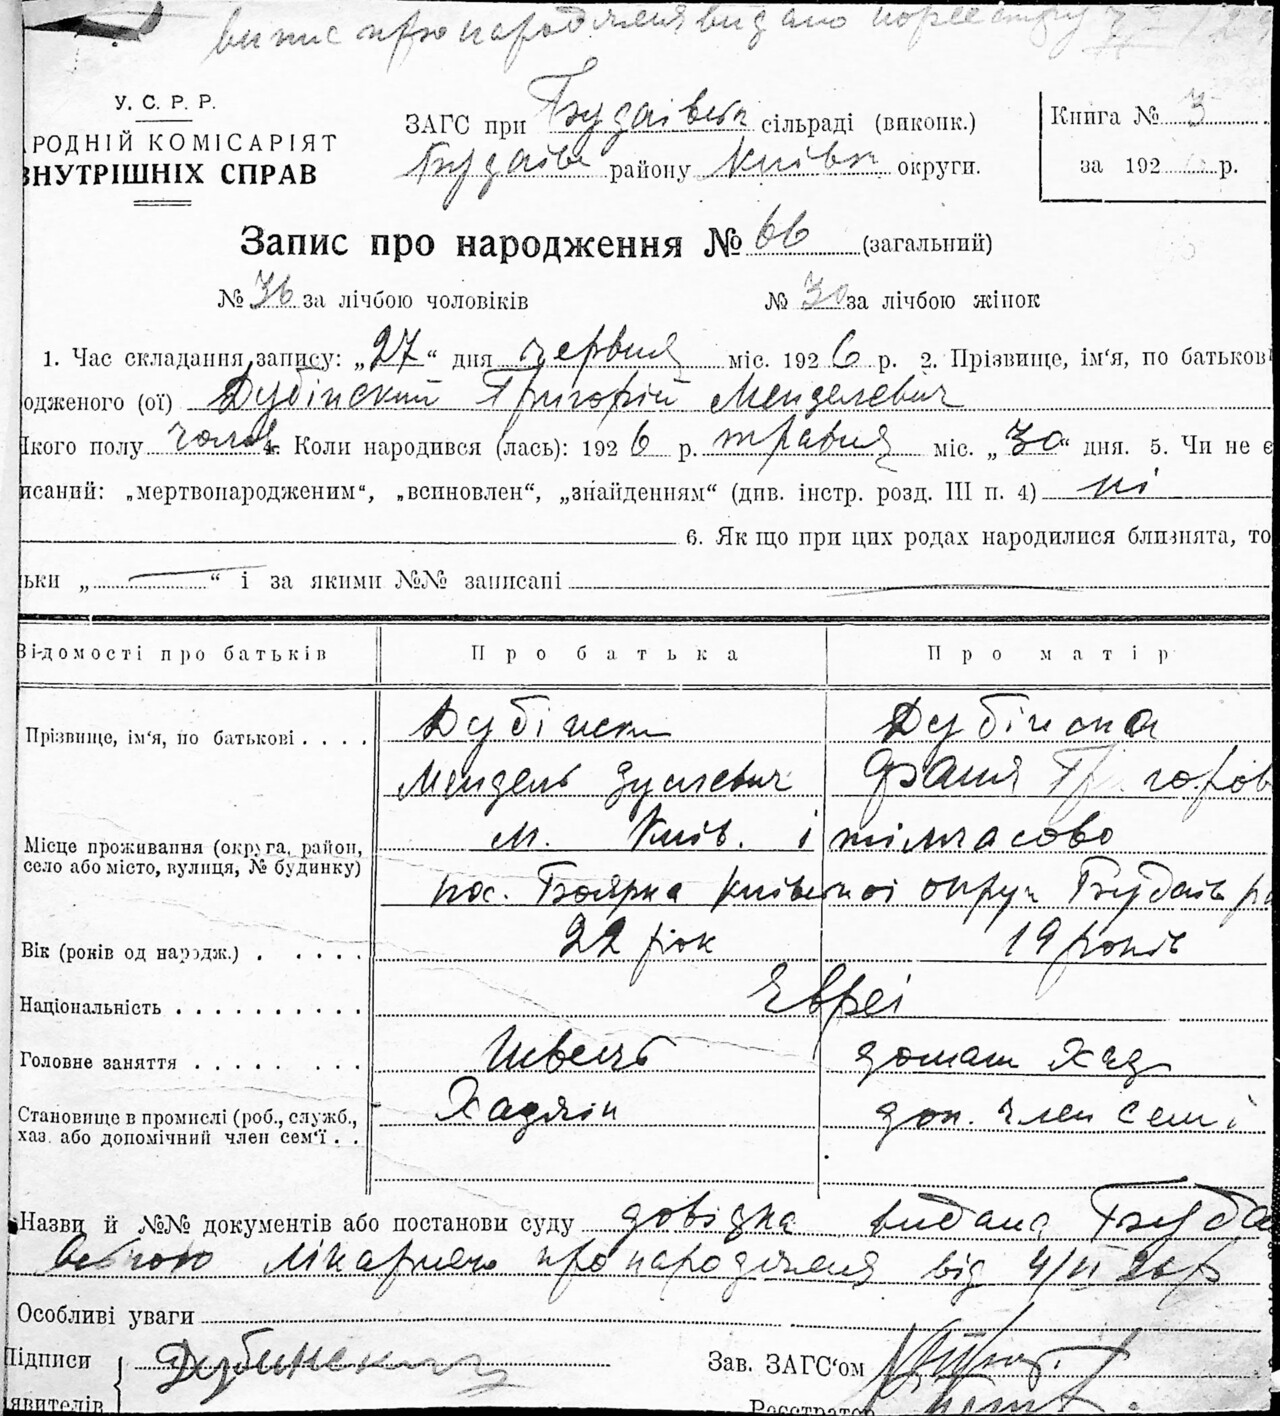 випис про народження видано по реєстру
У. С. Р. Р.
РОДНІЙ КОМІСАРІЯТ
ВНУТРІШНІХ СПРАВ
ЗАГС при Будаївськ сільраді (виконк.)
Будаїв району Київськ округи.
Книга № 3
за 192 р.
Запис про народження № 66 (загальний)
№ 36 за лічбою чоловіків № 30 за лічбою жінок
1. Час складання запису: „27“ дня червня міс. 1926 р. 2. Прізвище, ім'я, по батькові
одженого (ої) Дубінский Григорій Менделевич
Якого полу чолов. 4. Коли народився (лась): 1926 р. травня міс. „30“ дня. 5. Чи не є
исаний: „мертвонародженим“, „всиновлен“, „знайденням“ (див. інстр. розд. III п. 4) ні
6. Як що при цих родах народилися близнята, то
ьки „ “ і за якими №№ записані
Відомості про батьків Про батька Про матір
Прізвище, ім'я, по батькові . . . . Дубінськ Дубінска
Мендель Зуслевич Фаня Григоров
Місце проживання (округа, район, село або місто, вулиця, № будинку) м. Київ. і тимчасово
пос. Боярка Київської округ Будаїв ра
Вік (років од народж.) . . . . . 22 рок 19 років
Національність . . . . . . . . . . Євреї
Головне заняття . . . . . . . . Швець домаш хаз
Становище в промислі (роб., служб., Хазяїн доп. член семї
хаз. або допомічний член сем'ї . .
Назви й №№ документів або постанови суду довідка видана Буда
вською лікарнею про народження від 4/VI 26 р
Особливі уваги
Підписи Дубинский Зав. ЗАГС'ом
явителів Реєстратор